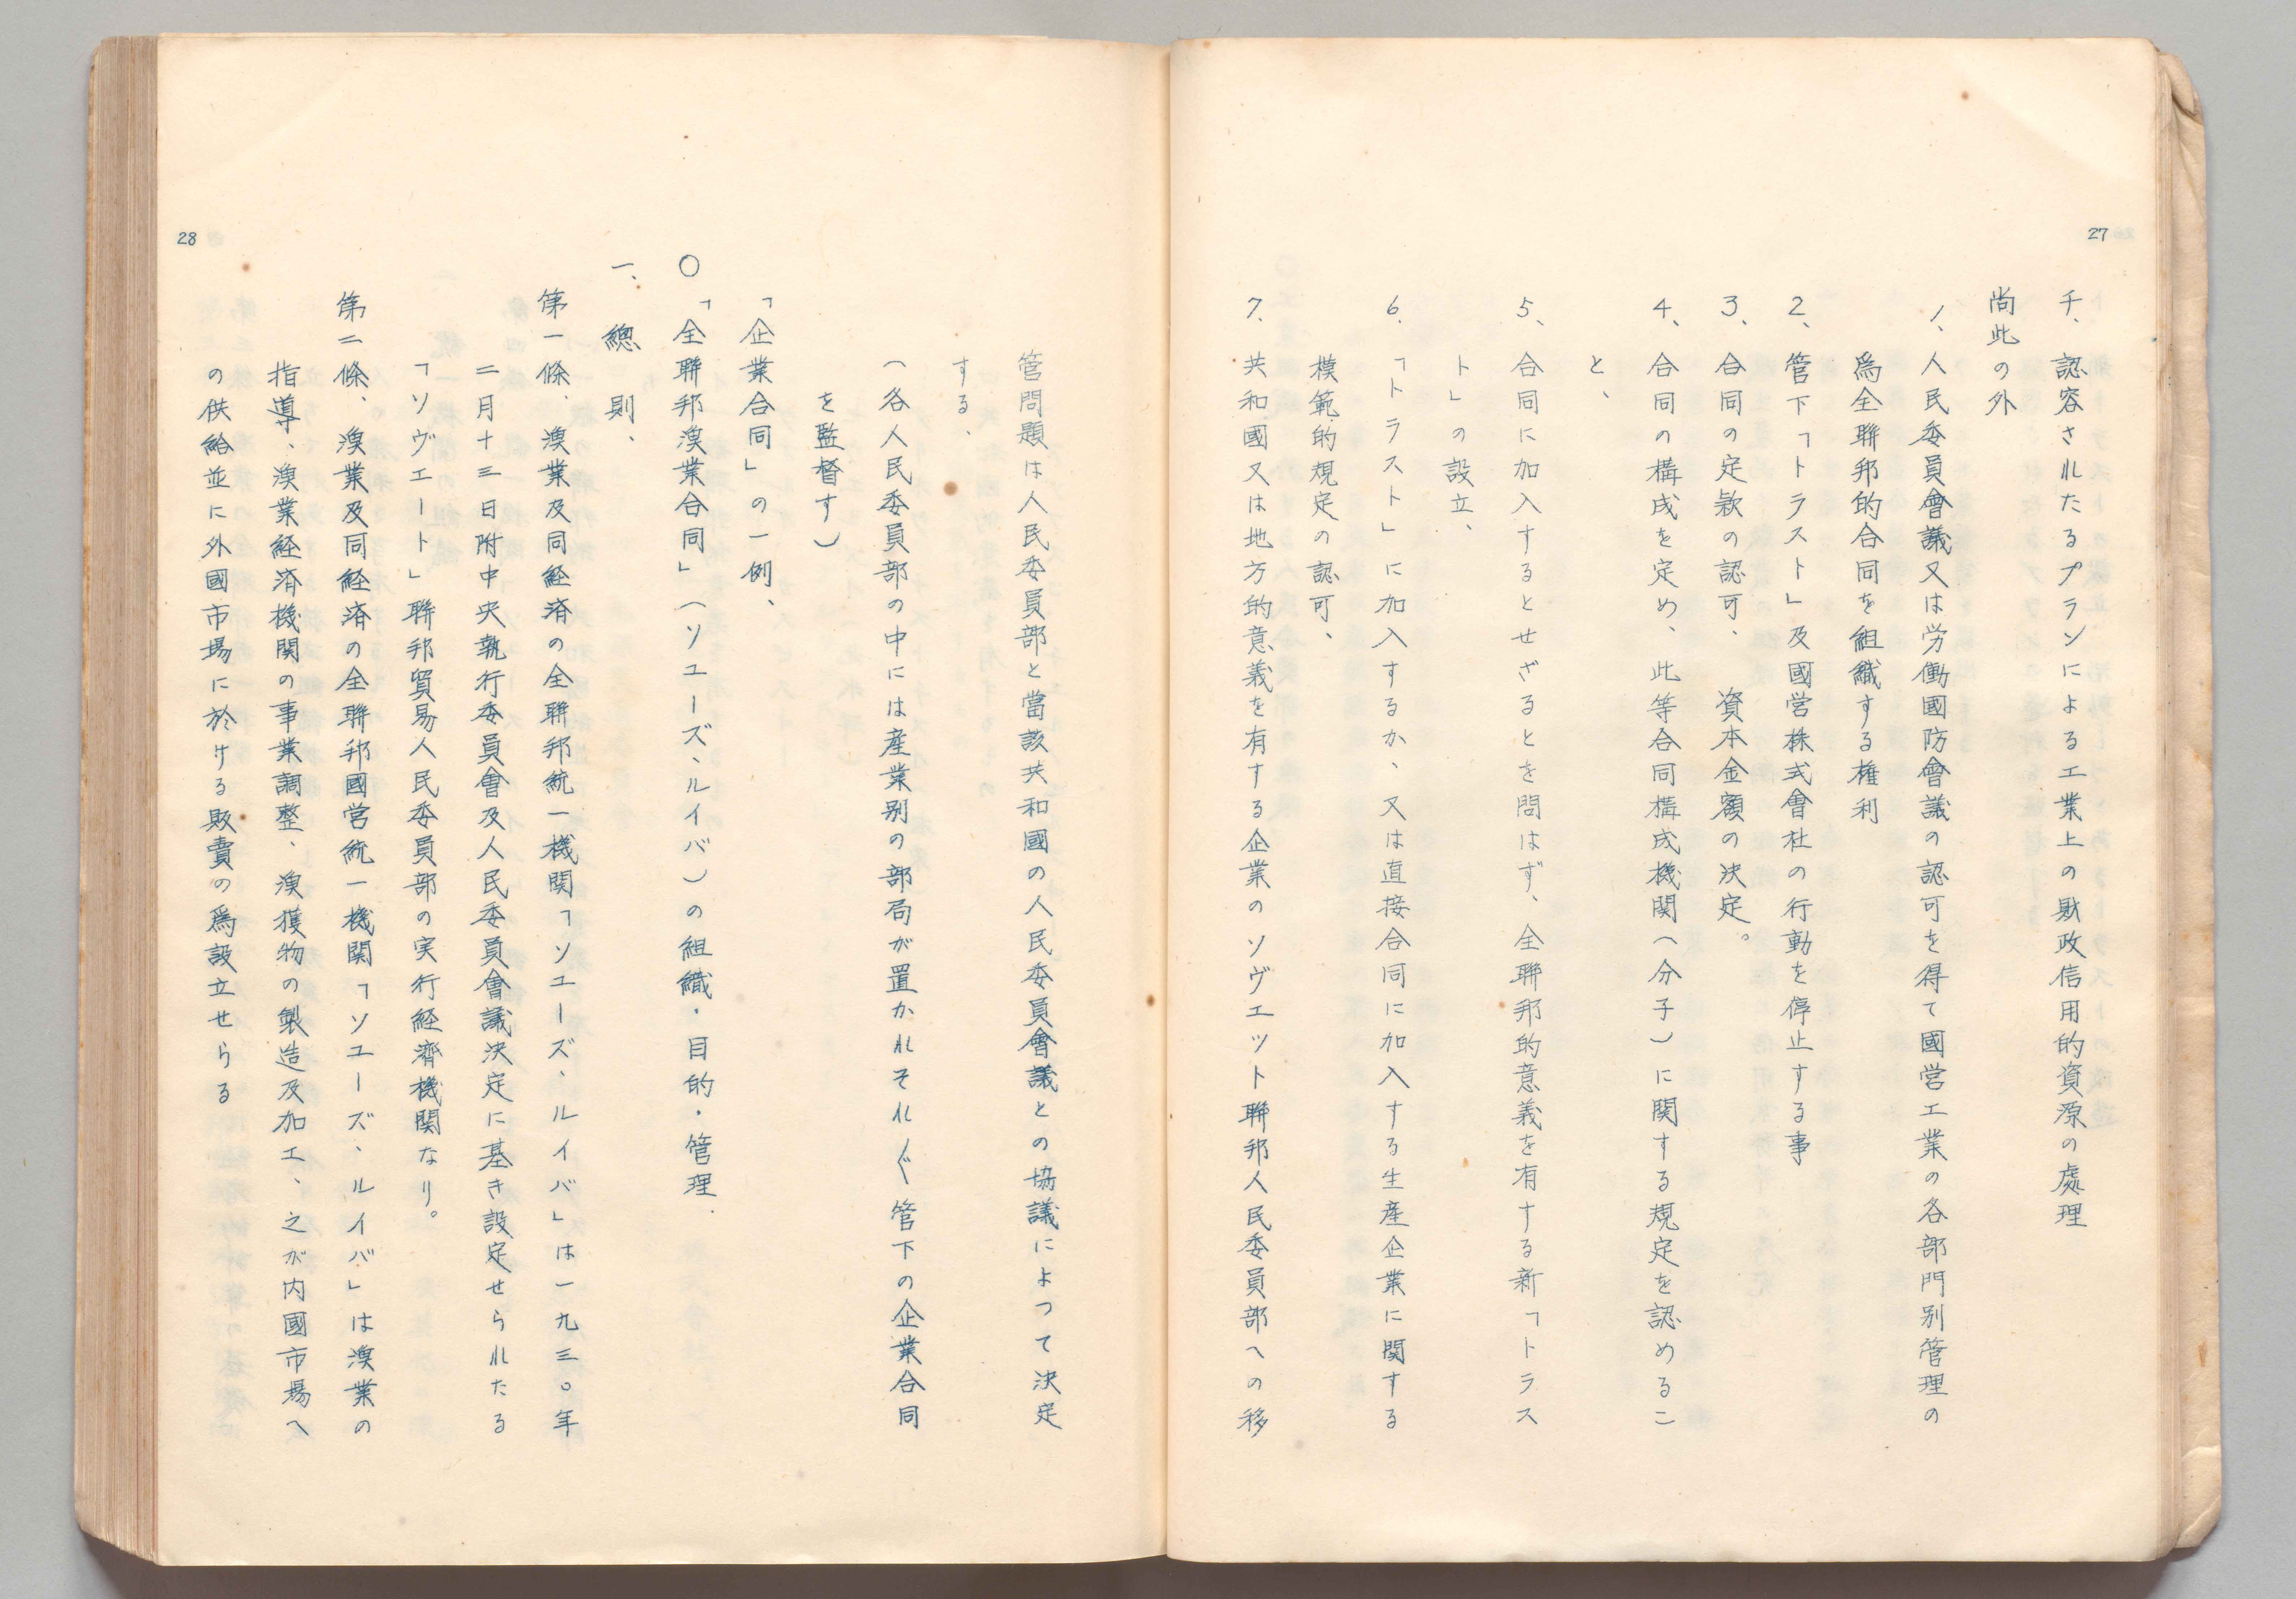 27
チ、認容されたるプランによる工業上の財政信用的資源の處理
尚此の外
1、人民委員會議又は労働國防會議の認可を得て國営工業の各部門別管理の
爲全聯邦的合同を組織する権利
2、管下「トラスト」及國営株式會社の行動を停止する事
3、合同の定款の認可、資本金額の決定。
4、合同の構成を定め、此等合同構成機関(分子)に関する規定を認めるこ
と、
5、合同に加入するとせざるとを問はず、全聯邦的意義を有する新「トラス
ト」の設立、
6.「トラスト」に加入するか、又は直接合同に加入する生産企業に関する
模範的規定の認可、
7.共和國又は地方的意義を有する企業のソヴエット聯邦人民委員部への移
28
管問題は人民委員部と當該共和國の人民委員會議との協議によつて決定
する、
(各人民委員部の中には産業別の部局が置かれそれ〴〵管下の企業合同
を監督す)
「企業合同」の一例、
○「全聯邦漁業合同」(ソユーズ、ルイバ)の組織・目的・管理.
一、總則、
第一條、漁業及同経済の全聯邦統一機関「ソユーズ、ルイバ」は一九三〇年
二月十三日附中央執行委員會及人民委員會議決定に基き設定せられたる
「ソヴエート」聯邦貿易人民委員部の実行経濟機関なり。
第二條、漁業及同経済の全聯邦國営統一機関「ソユーズ、ルイバ」は漁業の
指導、漁業経済機関の事業調整、漁獲物の製造及加工、之が内國市場へ
の供給並に外國市場に於ける販賣の爲設立せらる